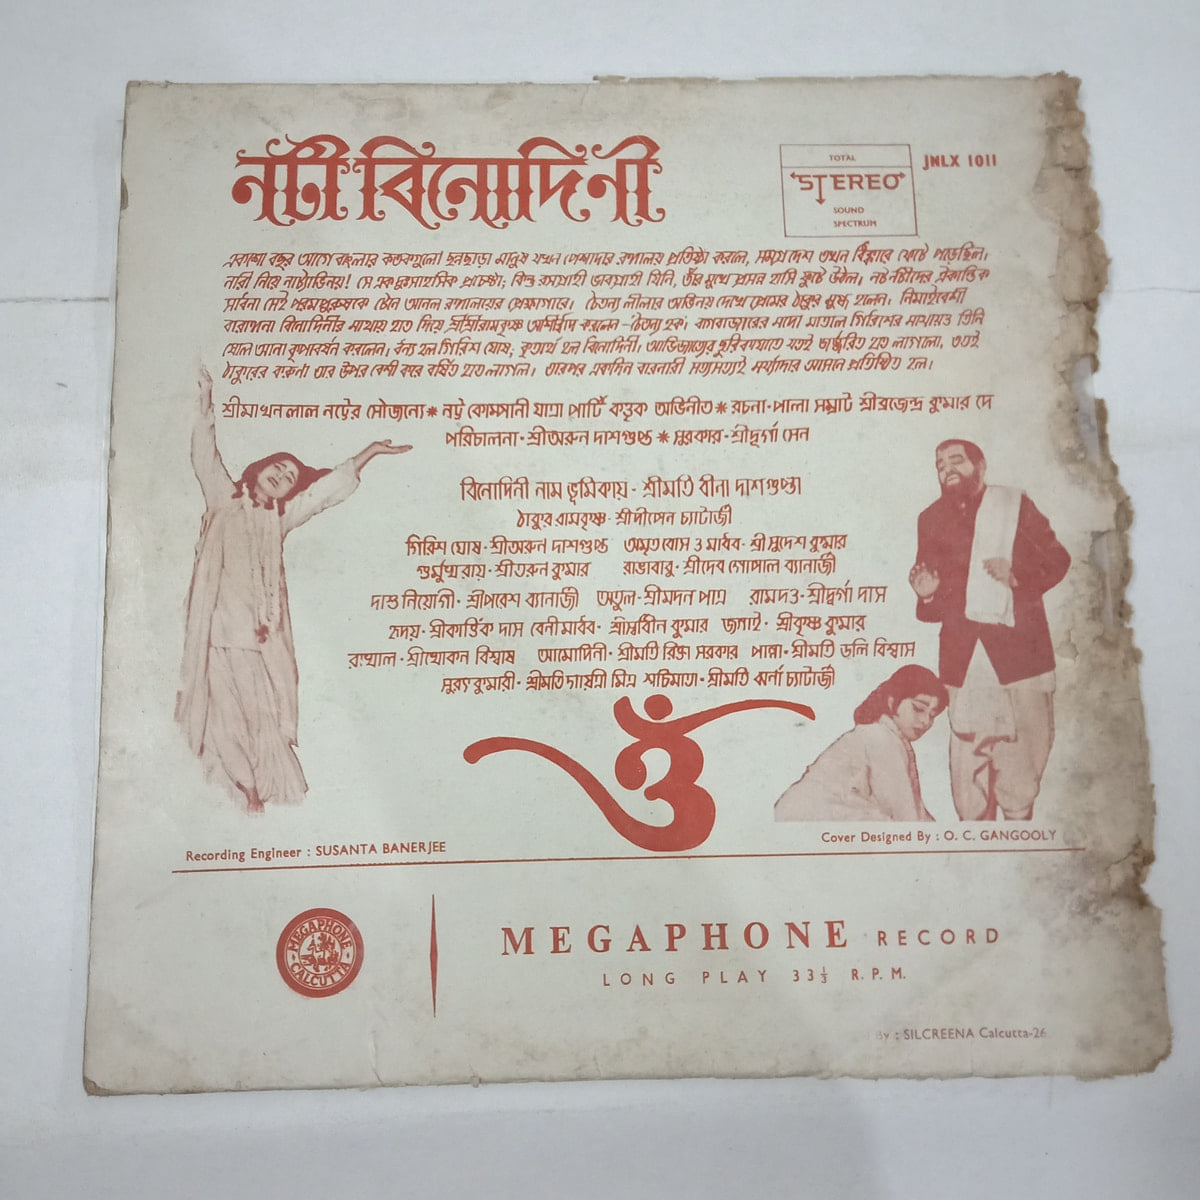 নটী বিনোদিনী
TOTAL
STEREO
SOUND
SPECTRUM
JNLX 1011
একশো বছর আগে বাংলার কতকগুলো ছন্নছাড়া মানুষ যখন পেশাদার রঙ্গালয় প্রতিষ্ঠা করলে, সমগ্র দেশ তখন ধিক্কারে ফেটে পড়েছিল,
নারী নিয়ে নাট্যাভিনয়! সে এক দুঃসাহসিক প্রচেষ্টা; কিন্তু রসগ্রাহী ভাবগ্রাহী যিনি, তাঁর মুখে প্রসন্ন হাসি ফুটে উঠল। নট নটীদের ঐকান্তিক
সাধনা সেই পরমপুরুষকে টেনে আনল রঙ্গালয়ের প্রেক্ষাগারে। চৈতন্য লীলার অভিনয় দেখে প্রেমের ঠাকুর মুগ্ধ হলেন। নিমাইবেশী
বারাঙ্গনা বিনোদিনীর মাথায় হাত দিয়ে শ্রীশ্রীরামকৃষ্ণ আশীর্ব্বাদ করলেন - চৈতন্য হক; বাগবাজারের মদো মাতাল গিরিশের মাথায়ও তিনি
ষোল আনা কৃপাবর্ষন করলেন। ধন্য হল গিরিশ ঘোষ, কৃতার্থ হল বিনোদিনী, আভিজাত্যের ছুরিকাঘাতে যতই জর্জ্জরিত হতে লাগলো, ততই
ঠাকুরের করুনা তার উপর বেশী করে বর্ষিত হতে লাগল। তারপর একদিন বারনারী সত্যসত্যই মর্য্যাদার আসনে প্রতিষ্ঠিত হল।
শ্রীমাখনলাল নট্টের সৌজন্যে * নট্ট কোম্পানী যাত্রা পার্টি কর্তৃক অভিনীত * রচনা - পালা সম্রাট শ্রীব্রজেন্দ্র কুমার দে
পরিচালনা - শ্রীঅরুন দাশগুপ্ত * সুরকার - শ্রীদুর্গা সেন
বিনোদিনী নাম ভূমিকায় - শ্রীমতি বীনা দাশগুপ্তা
ঠাকুর রামকৃষ্ণ - শ্রীদীপেন চ্যাটার্জী
গিরিশ ঘোষ - শ্রীঅরুন দাশগুপ্ত অমৃত বোস ও মাধব - শ্রী সুদেশ কুমার
গুর্মুখ রায় - শ্রীতরুন কুমার রাঙাবাবু - শ্রীদেব গোপাল ব্যানার্জী
দাশু নিয়োগী - শ্রীপরেশ ব্যানার্জী অতুল - শ্রীমদন পাত্র রামদত্ত - শ্রীদুর্গা দাস
হৃদয় - শ্রীকার্ত্তিক দাস বেনীমাধব - শ্রীস্বাধীন কুমার জগাই - শ্রীকৃষ্ণ কুমার
রাখাল - শ্রীখোকন বিশ্বাষ আমোদিনী - শ্রীমতি রিক্তা সরকার পান্না - শ্রীমতি ডলি বিশ্বাস
সুরৎ কুমারী - শ্রীমতি গায়ত্রী মিত্র শচিমাতা - শ্রীমতি ঝর্ণা চ্যাটার্জী
ওঁ
Recording Engineer : SUSANTA BANERJEE
Cover Designed By : O. C. GANGOOLY
MEGAPHONE
CALCUTTA
MEGAPHONE RECORD
LONG PLAY 33⅓ R.P.M.
By : SILCREENA Calcutta-26